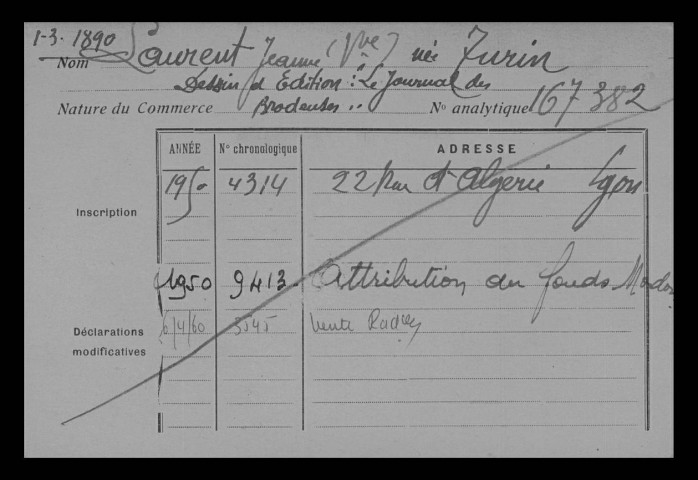 1-3. 1890
Nom Laurent Jeanne (Vve) née Turin
Dessin d'Edition: "Le Journal des
Nature du Commerce Brodeuses" N° analytique 167 382
ANNÉE N° chronologique ADRESSE
Inscription 1950 4314 22 Rue d'Algerie Lyon
1950 9413 Attribution du fonds
Déclarations modificatives 6/4/60 3545 Vente